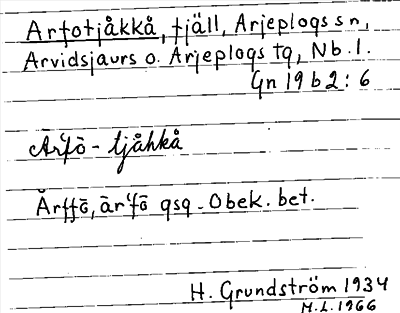 Arfotjåkkå, fjäll, Arjeplogs sn,
Arvidsjaurs o. Arjeplogs tg, Nb. l.
Gn 19 b 2 : 6
Ar'fō - tjåhkå
Ărffō, ār'fō gsg - Obek. bet.
H. Grundström 1934
M.L. 1966